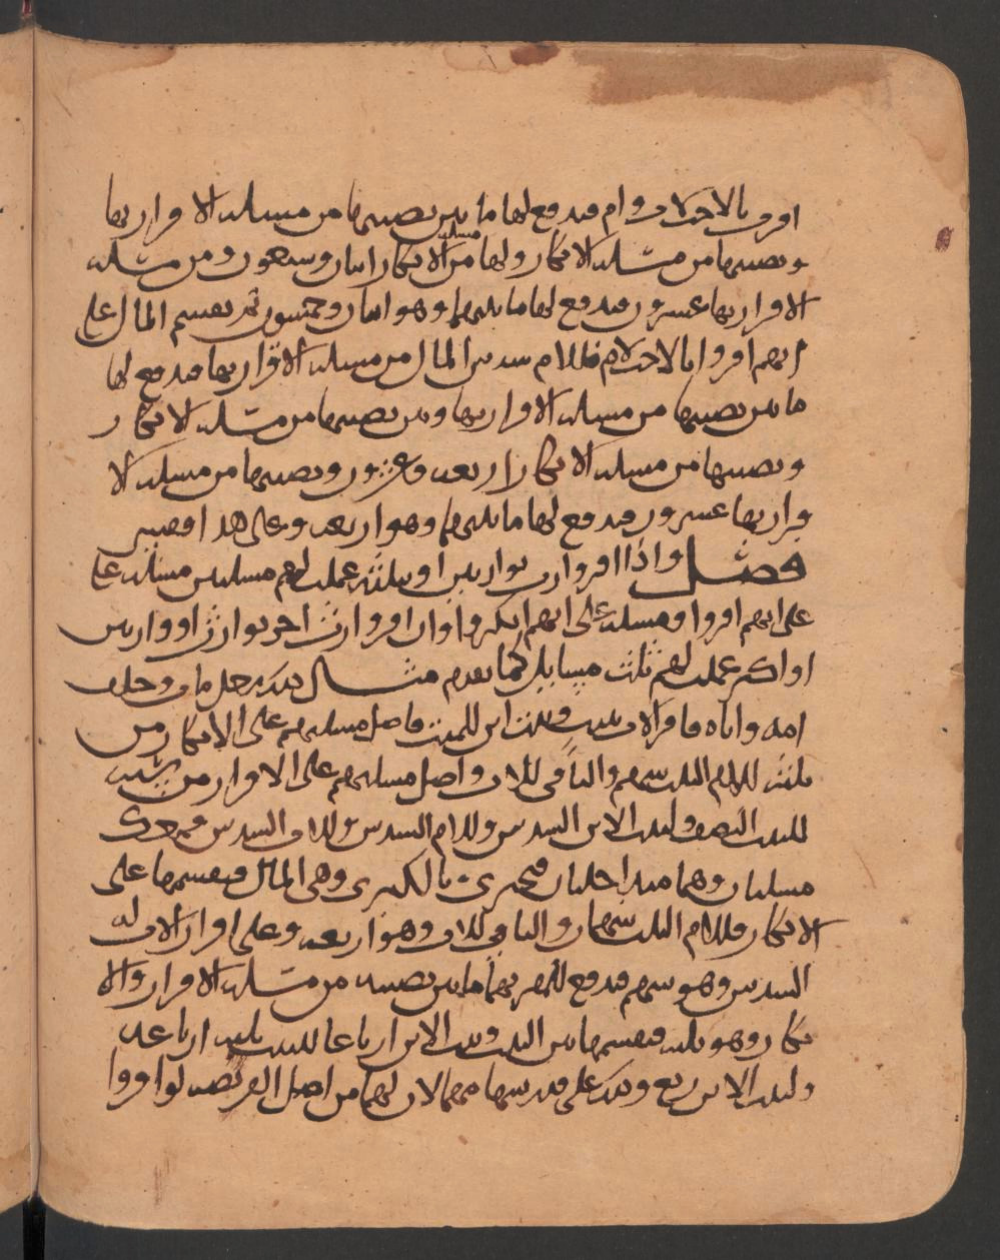 اقرت بالاخت لاب وام فيدفع لها ما بين نصيبها من مسلة الاقرار بها
ونصيبها من مسلة الانكار ولها من مسلة الانكار اثنان وسبعون ومن مسلة
الاقرار بها عشرون فيدفع لها ما بينهما وهو اثنان وخمسون ثم يقسم المال على
انهم اقروا بالاخت للام فللام سدس المال من مسلة الاقرار بها فيدفع لها
ما بين نصيبها من مسلة الاقرار بها وبين نصيبها من مسلة الانكار
ونصيبها من مسلة الانكار اربعة وعشرون ونصيبها من مسلة الا
قرار بها عشرون فيدفع لها ما بينهما وهو اربعة وعلى هذا فقس
فصل واذا اقر وارث بوارثين او بثلثة عملت لهم مسلتين مسلة على
على انهم اقروا ومسلة على انهم انكروا وان اقر وارث اخر بوارث او وارثين
او اكثر عملت لهم ثلث مسايل كما تقدم مثال ذلك رجل مات وخلف
امه واباه فاقر الاب ببنت وبنت ابن للميت فاصل مسلتهم على الانكار من
ثلثة للام الثلث سهم والباقي للاب واصل مسلتهم على الاقرار من ستة
للبنت النصف ولبنت الابن السدس وللام السدس وللاب السدس فمعك
مسلتان وهما متداخلتان فتجتزي بالكبرى وهي المال فيقسمها على
الانكار فللام الثلث سهمان والباقي للاب وهو اربعة وعلى اقرار الاب له
السدس وهو سهم فيدفع للمقر بهما ما بين نصيبه من مسلة الاقرار والا
نكار وهو ثلثة فيقسمها بين البنت وبنت الابن ارباعا للبنت ثلثة ارباعه
ولبنت الابن ربع وذلك على قدر سهامهما لان لهما من اصل الفريضة لو اقروا